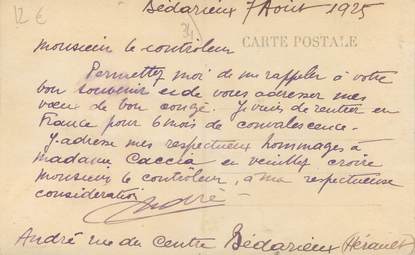 12 €
Bédarieux 7 Août 1925
Monsieur le contrôleur
CARTE POSTALE
Permettez moi de me rappeler à votre
bon souvenir et de vous adresser mes
vœux de bon congé. Je viens de rentrer en
France pour 6 mois de convalescence.
J'adresse mes respectueux hommages à
madame Caccia et veuillez croire
monsieur le contrôleur, à ma respectueuse
consideration
André
André rue du Centre Bédarieux (Hérault)